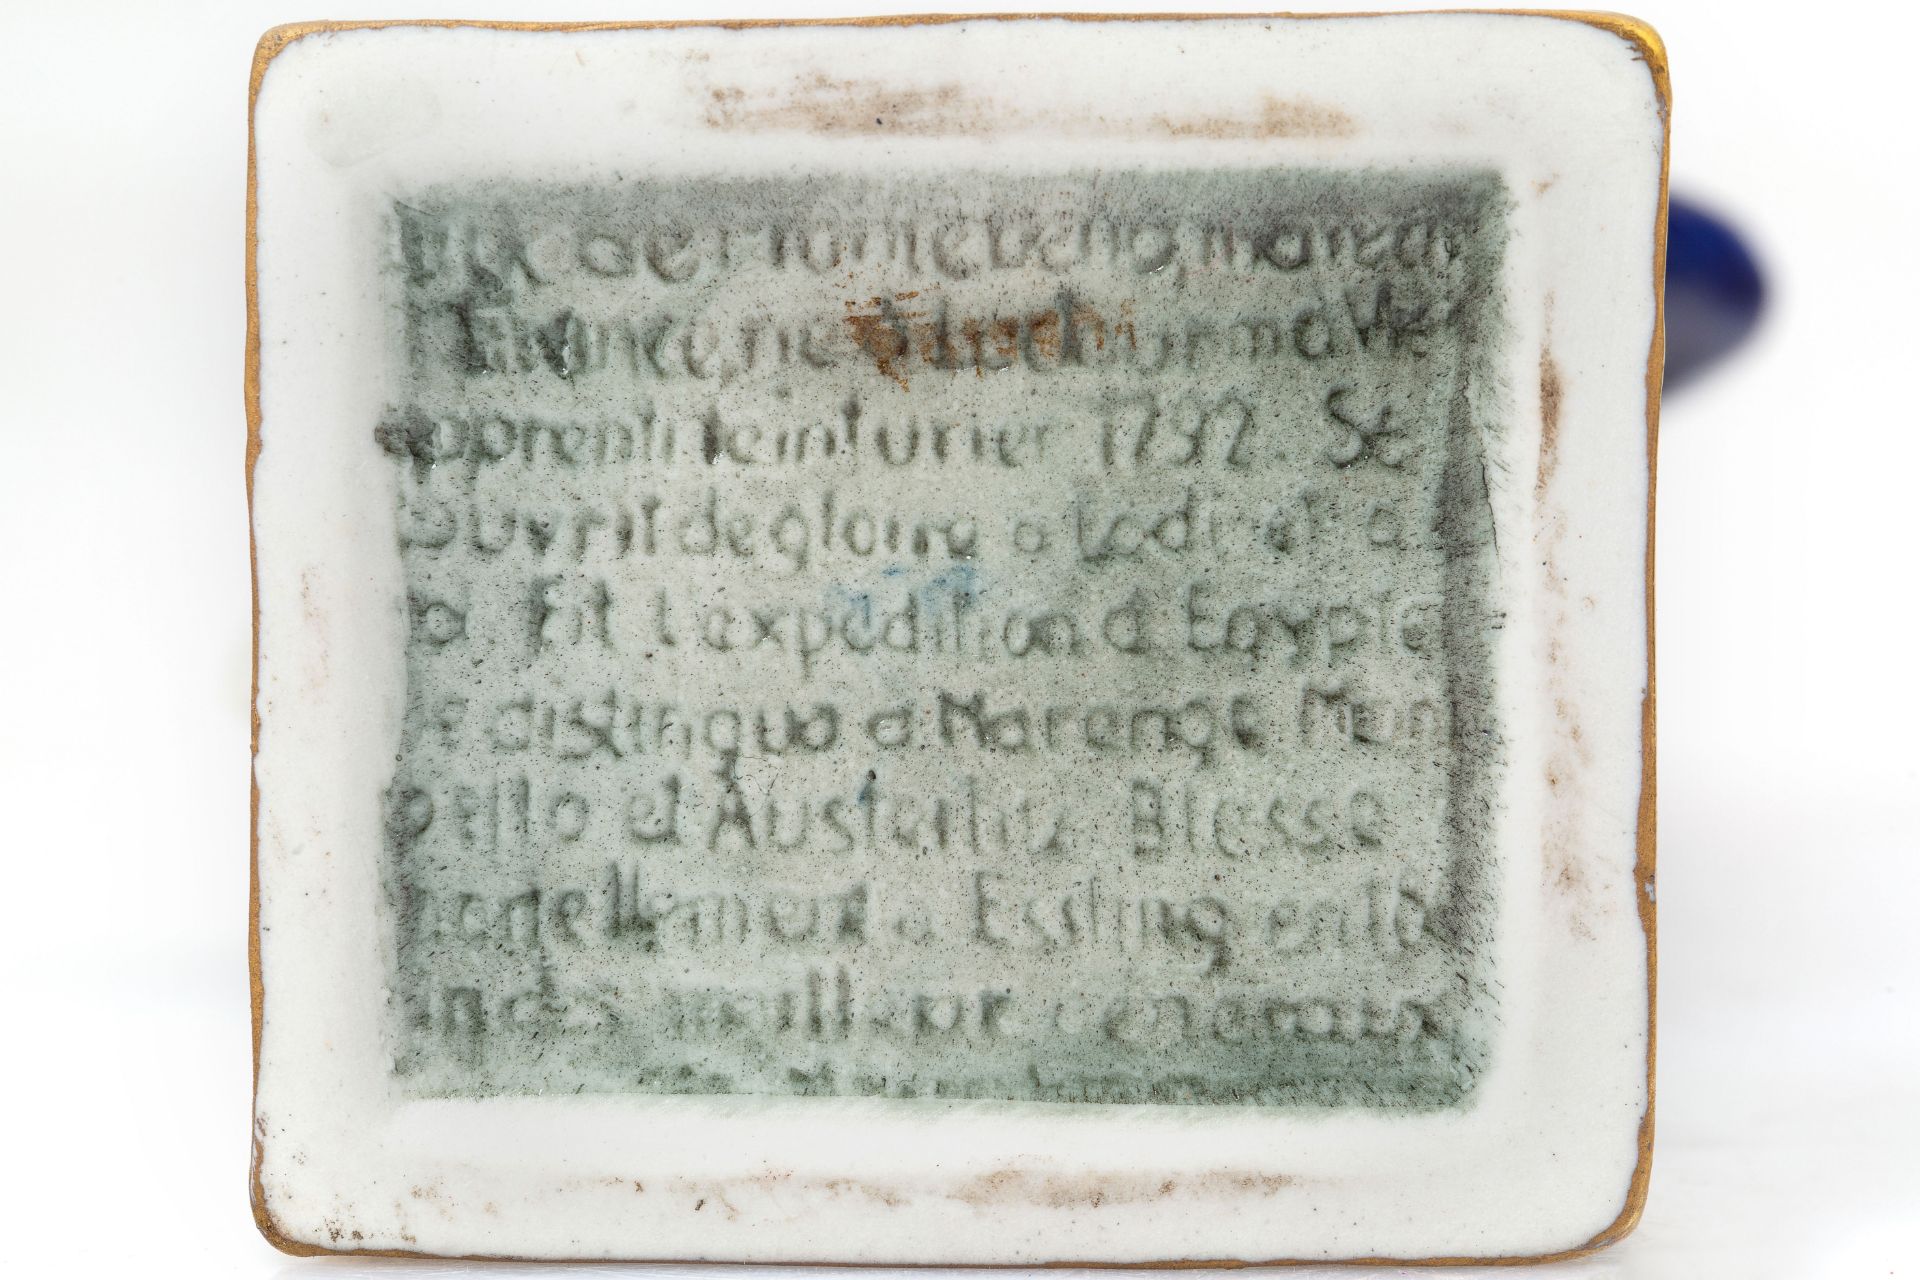 de Montebello, marech
France, ne a Lectour ma Vie
apprenti teinturier 1792. Se
ouvrit de gloire a Lodi et a
ol Fit l'expedition d Egypte
e distingua a Marengo Mon
bello et Austerlitz Blesse
tonellement a Essling est la
un des meilleur generaux